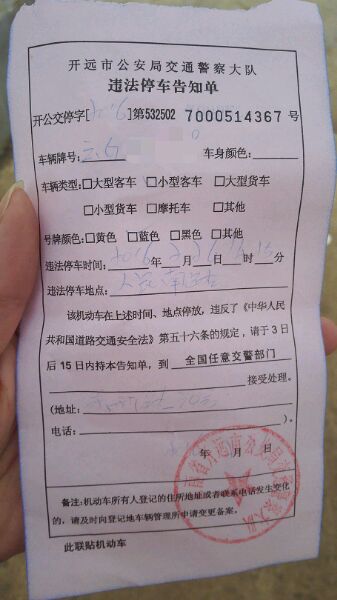 开远市公安局交通警察大队
违法停车告知单
开公交停字[2016]第532502 7000514367 号
车辆牌号: 云G 车身颜色:
车辆类型: □大型客车 □小型客车 □大型货车
□小型货车 □摩托车 □其他
号牌颜色: □黄色 □蓝色 □黑色 □其他
违法停车时间: 2016年 月 日 时 分
违法停车地点: 人民南路
该机动车在上述时间、地点停放，违反了《中华人民
共和国道路交通安全法》第五十六条的规定，请于3日
后15日内持本告知单，到 全国任意交警部门
接受处理。
(地址:
电话: )
年 月 日
备注: 机动车所有人登记的住所地址或者联系电话发生变化
的，请及时向登记地车辆管理所申请变更备案。
此联贴机动车